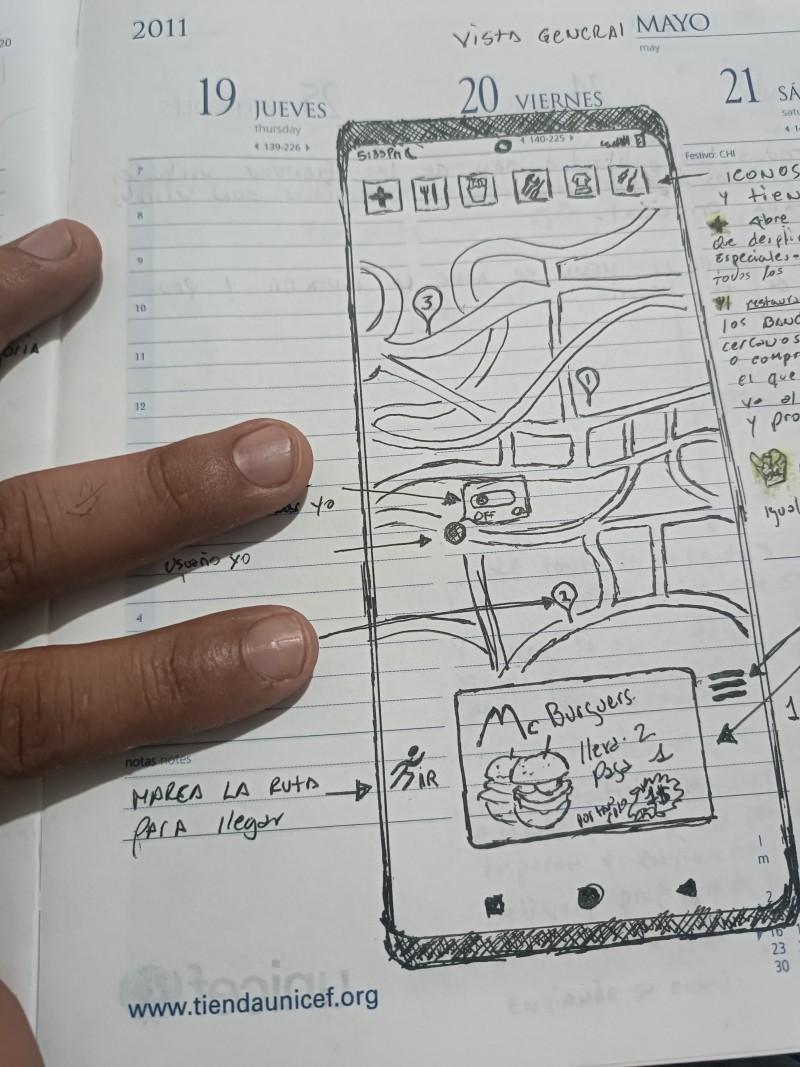 20
2011
VISTA GENERAL MAYO
may
19 JUEVES
thursday
139-226
20 VIERNES
140-225
21 SÁ
satu
Festivo: CHI
7
8
9
10
11
12
4
5:33PM
ICONOS
y tien
Abre
que despli
Especiales.
todos los
restaura
los BANC
cercanos
o compr
el que
ya el
y pro
Igual
3
1
OFF
yo
usuario yo
2
Mc Burguers.
lleva. 2
Paga 1
1$
IR
notas notes
MARCA LA RUTA
PARA llegar
1
l
m
2
16
23
30
unicef
www.tiendaunicef.org